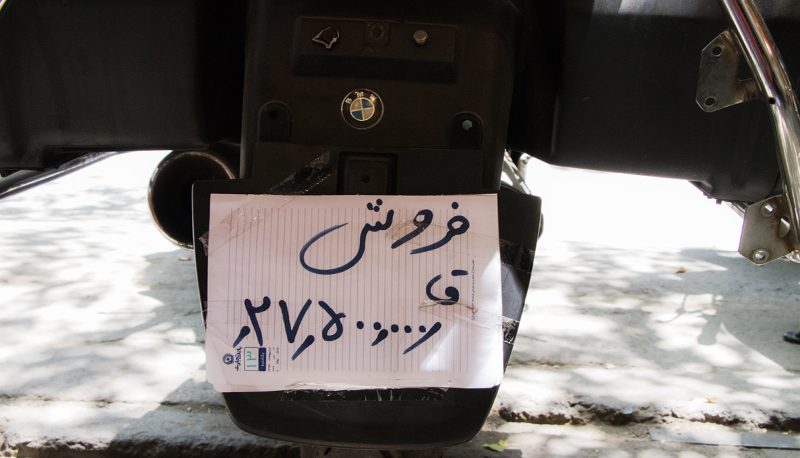 BMW
فروش
۲۷,۵۰۰,۰۰۰
۱۳